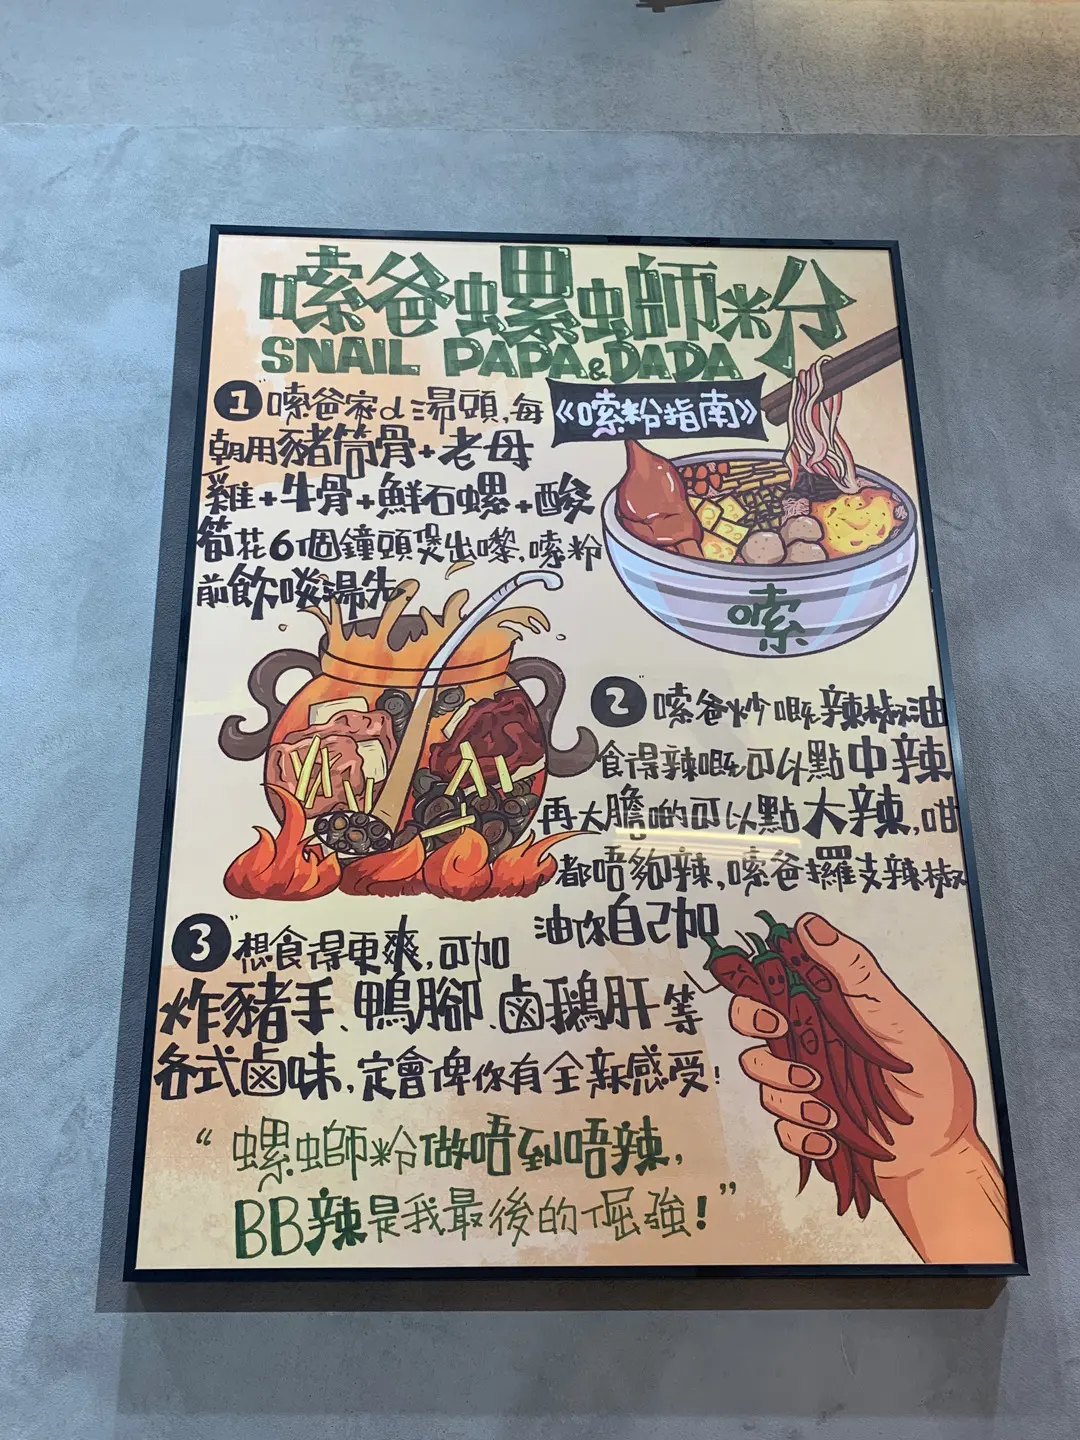 嗦爸螺螄粉
SNAIL PAPA&DADA
《嗦粉指南》
1 嗦爸家d湯頭,每
朝用豬筒骨+老母
雞+牛骨+鮮石螺+酸
筍花6個鐘頭煲出嚟,嗦粉
前飲啖湯先.
嗦
2 嗦爸炒嘅辣椒油
食得辣嘅可以點中辣
再大膽啲可以點大辣,咁
都唔夠辣,嗦爸攞支辣椒
油你自己加
3 想食得更爽,可加
炸豬手、鴨腳、鹵鵝肝等
各式鹵味,定會俾你有全新感受!
“螺螄粉做唔到唔辣,
BB辣是我最後的倔強!”